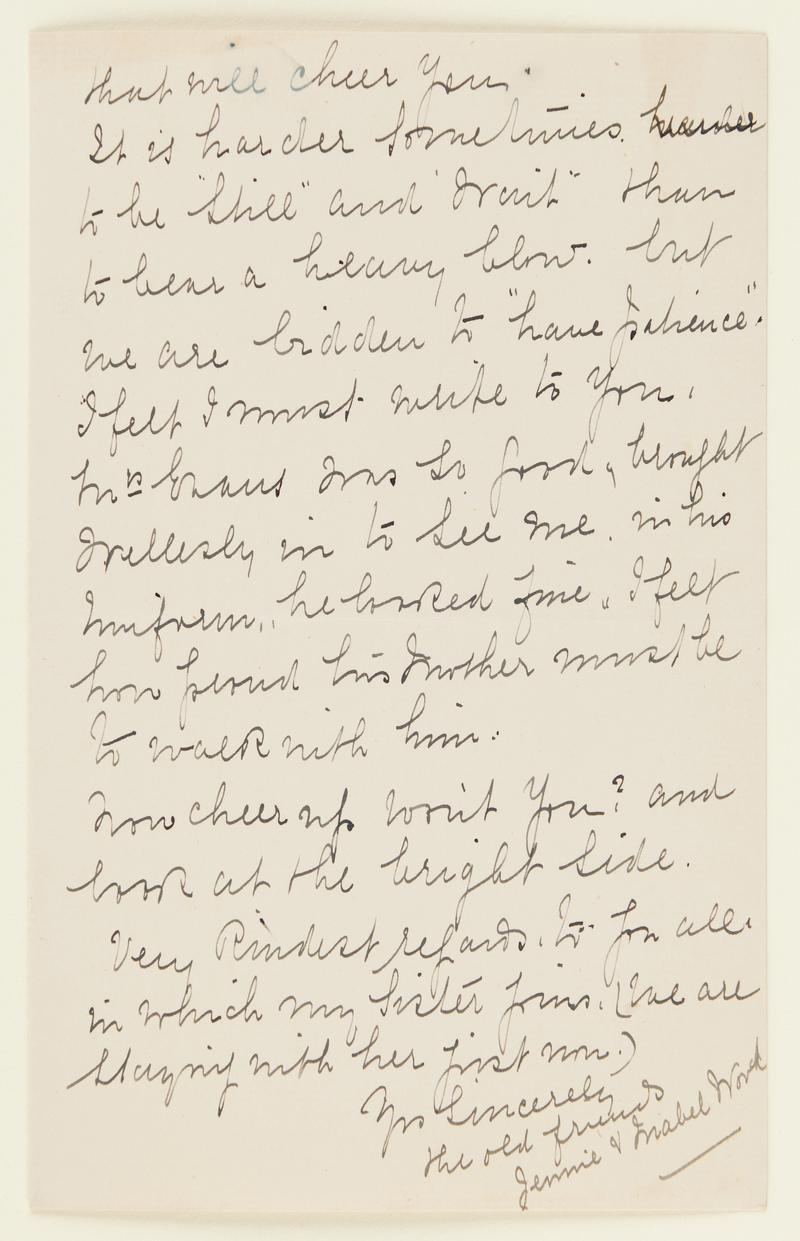 that will cheer you.
It is harder sometimes. harder
to be "Still" and "Wait" than
to bear a heavy blow. but
we are bidden to "have patience".
I felt I must write to you.
Mrs Evans was so good, brought
Wellesly in to see me. in his
Uniform, he looked fine, I felt
how proud his Mother must be
to walk with him.
Now cheer up won't you? and
look at the bright side.
Very Kindest regards. to you all.
in which my Sister joins. (We are
staying with her just now.)
Yrs Sincerely
the old friends
Jennie & Mabel